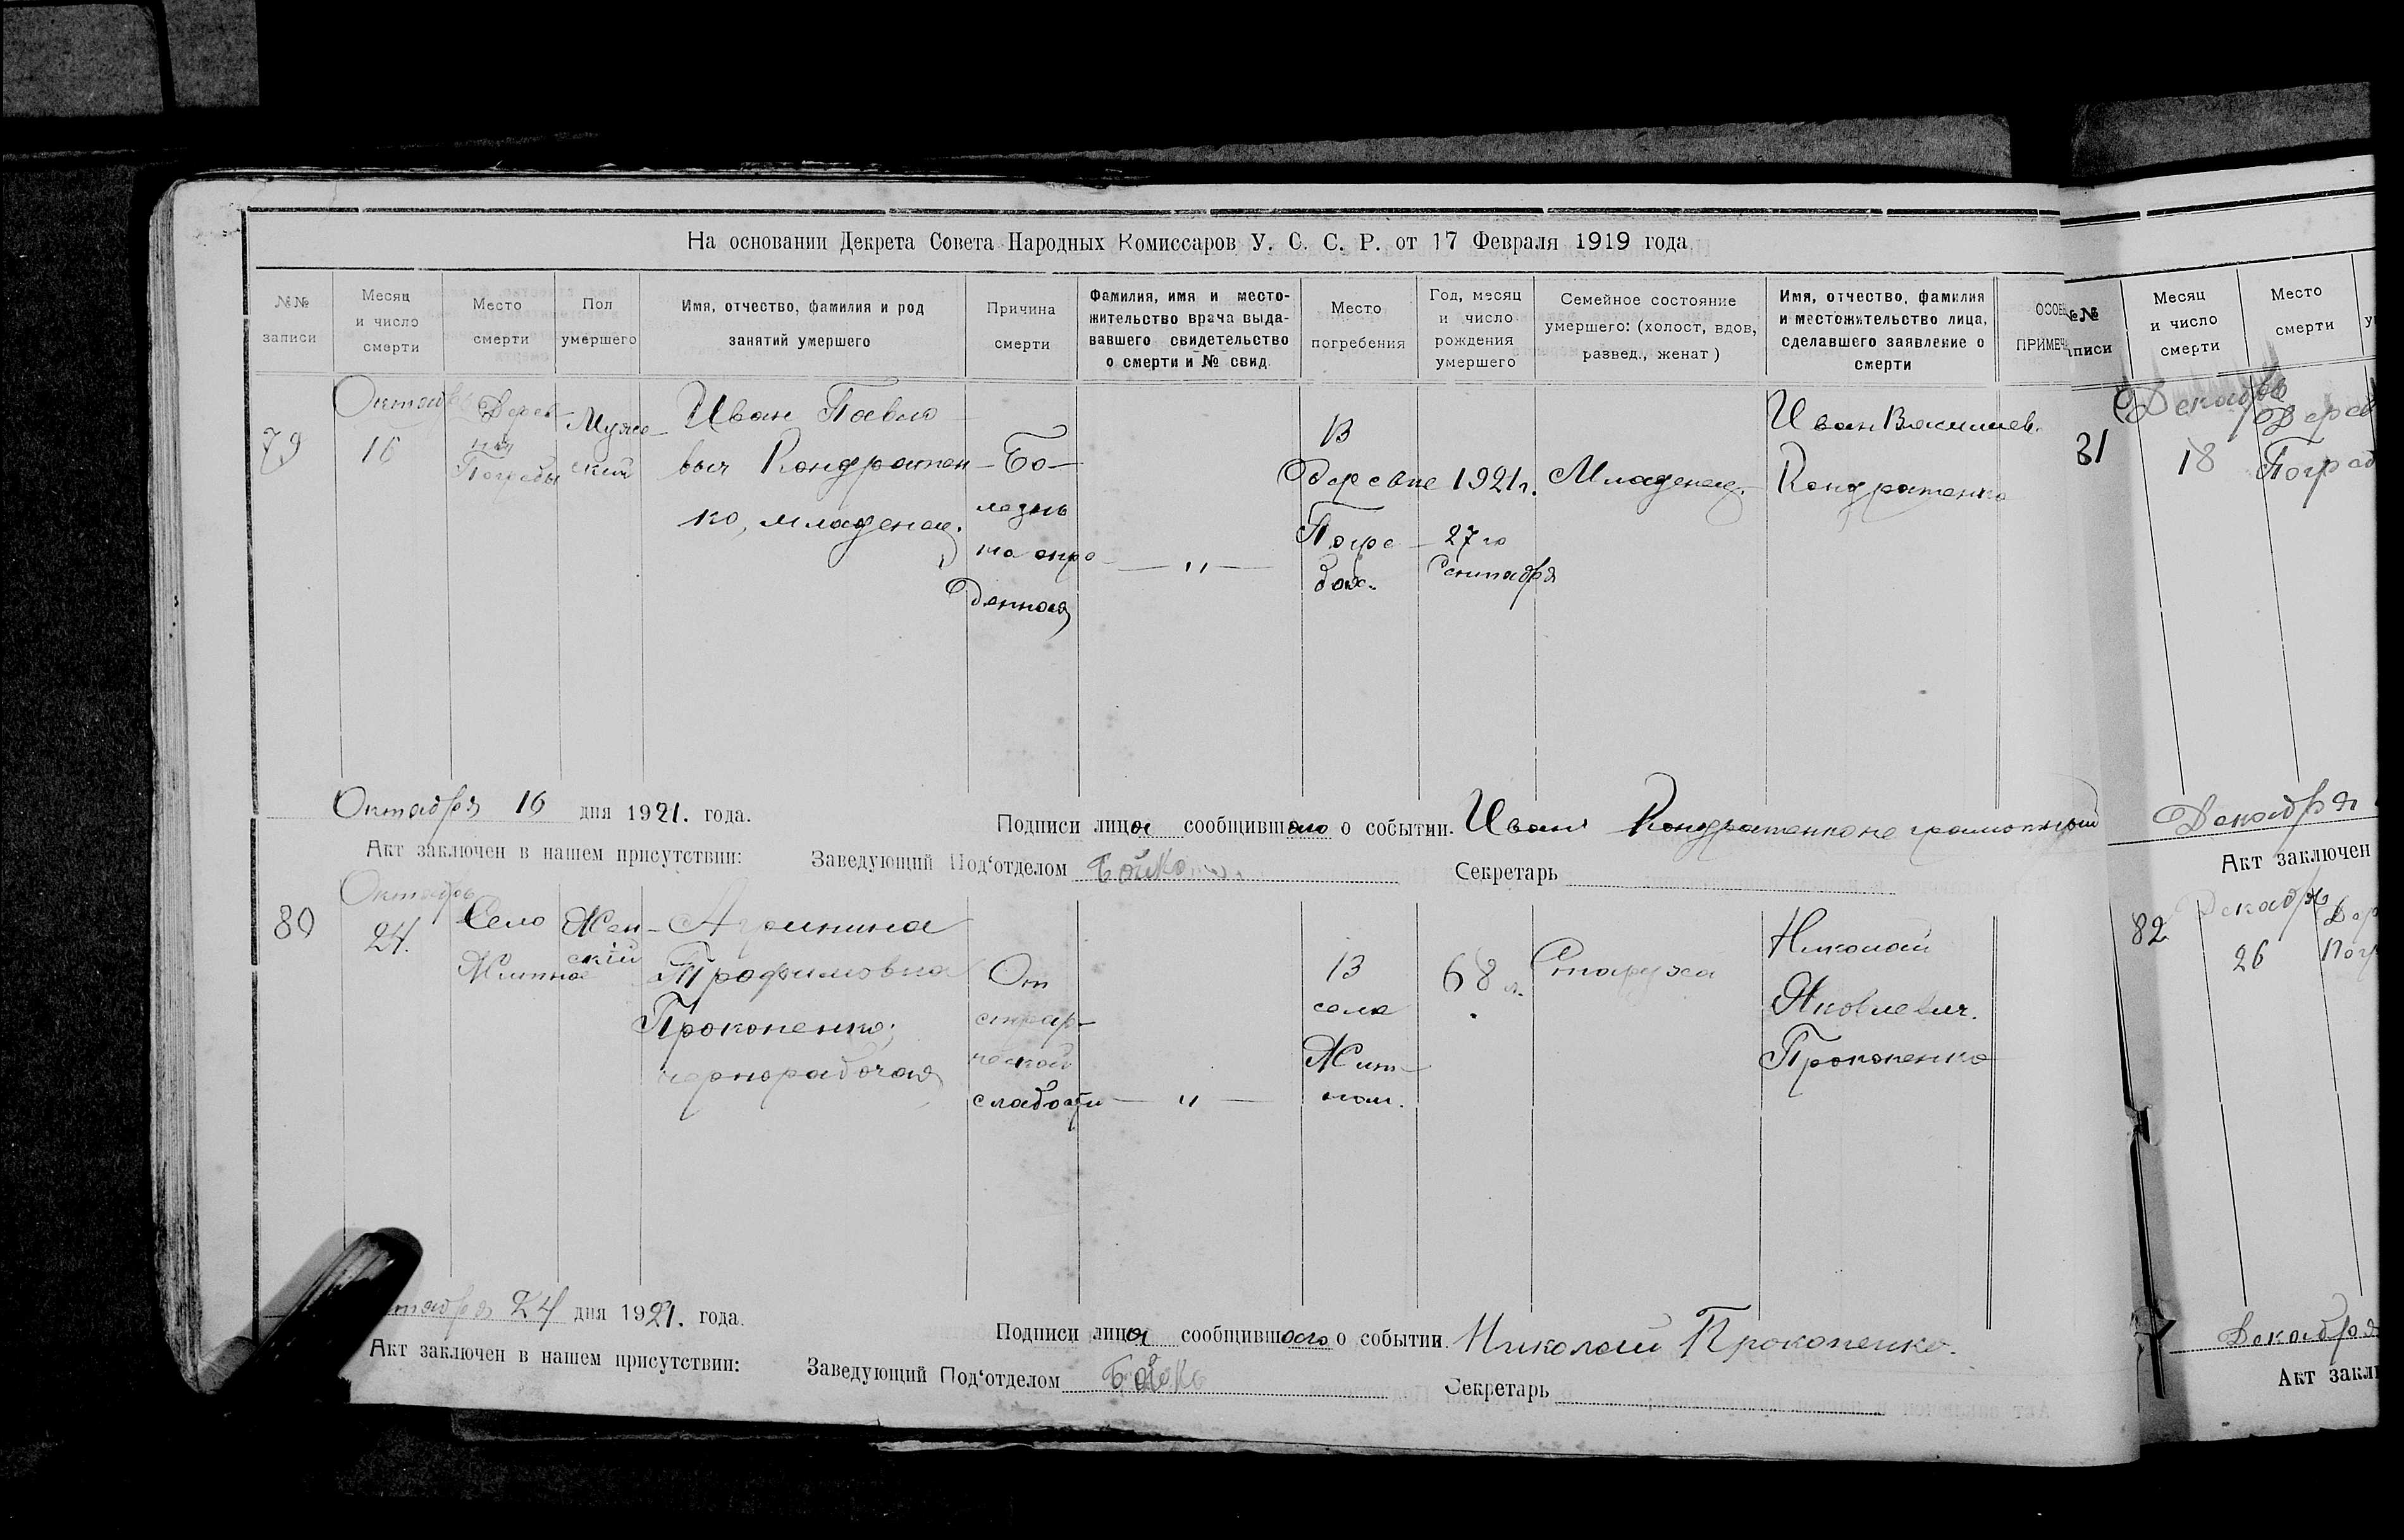 На основании Декрета Совета Народных Комиссаров У. С. С. Р. от 17 Февраля 1919 года
№№ записи
Месяц и число смерти
Место смерти
Пол умершего
Имя, отчество, фамилия и род занятий умершего
Причина смерти
Фамилия, имя и место-
жительство врача выда-
вавшего свидетельство
о смерти и № свид.
Место погребения
Год, месяц и число рождения умершего
Семейное состояние
умершего: (холост, вдов,
развед., женат)
Имя, отчество, фамилия
и местожительство лица,
сделавшего заявление о
смерти
79
Октябрь
16
Дерев-
ня
Погребы
Муже-
ский
Иван Павло-
вич Кондратен-
ко, младенец.
Бо-
лезнь
не опре-
денная
— " —
В
деревне
Погре-
бах.
1921 г.
27 го
Сентября
Младенец.
Иван Васильев.
Кондратенко
Октября 16 дня 1921. года.
Подписи лица сообщившего о событии. Иван Кондратенко неграмотный
Акт заключен в нашем присутствии: Заведующий Под‘отделом Бойко Секретарь
80
Октябрь
24.
Село
Житное
Жен-
скій
Агрипина
Трофимовна
Прокопенко;
чернорабочая
От
старче-
ческой
слабости
— " —
В
селе
Жит-
ном.
68 л.
Старуха
Николай
Яковлевич.
Прокопенко
Октября 24 дня 1921. года.
Подписи лица сообщившего о событии. Николай Прокопенко.
Акт заключен в нашем присутствии: Заведующий Под‘отделом Бойко Секретарь
№№
Месяц
и число
смерти
Место
смерти
81
Декабрь
18
Дерев
Погреб
Декабря
Акт заключен
82
Декабрь
26
Дер
Погр
Декабря
Акт закл